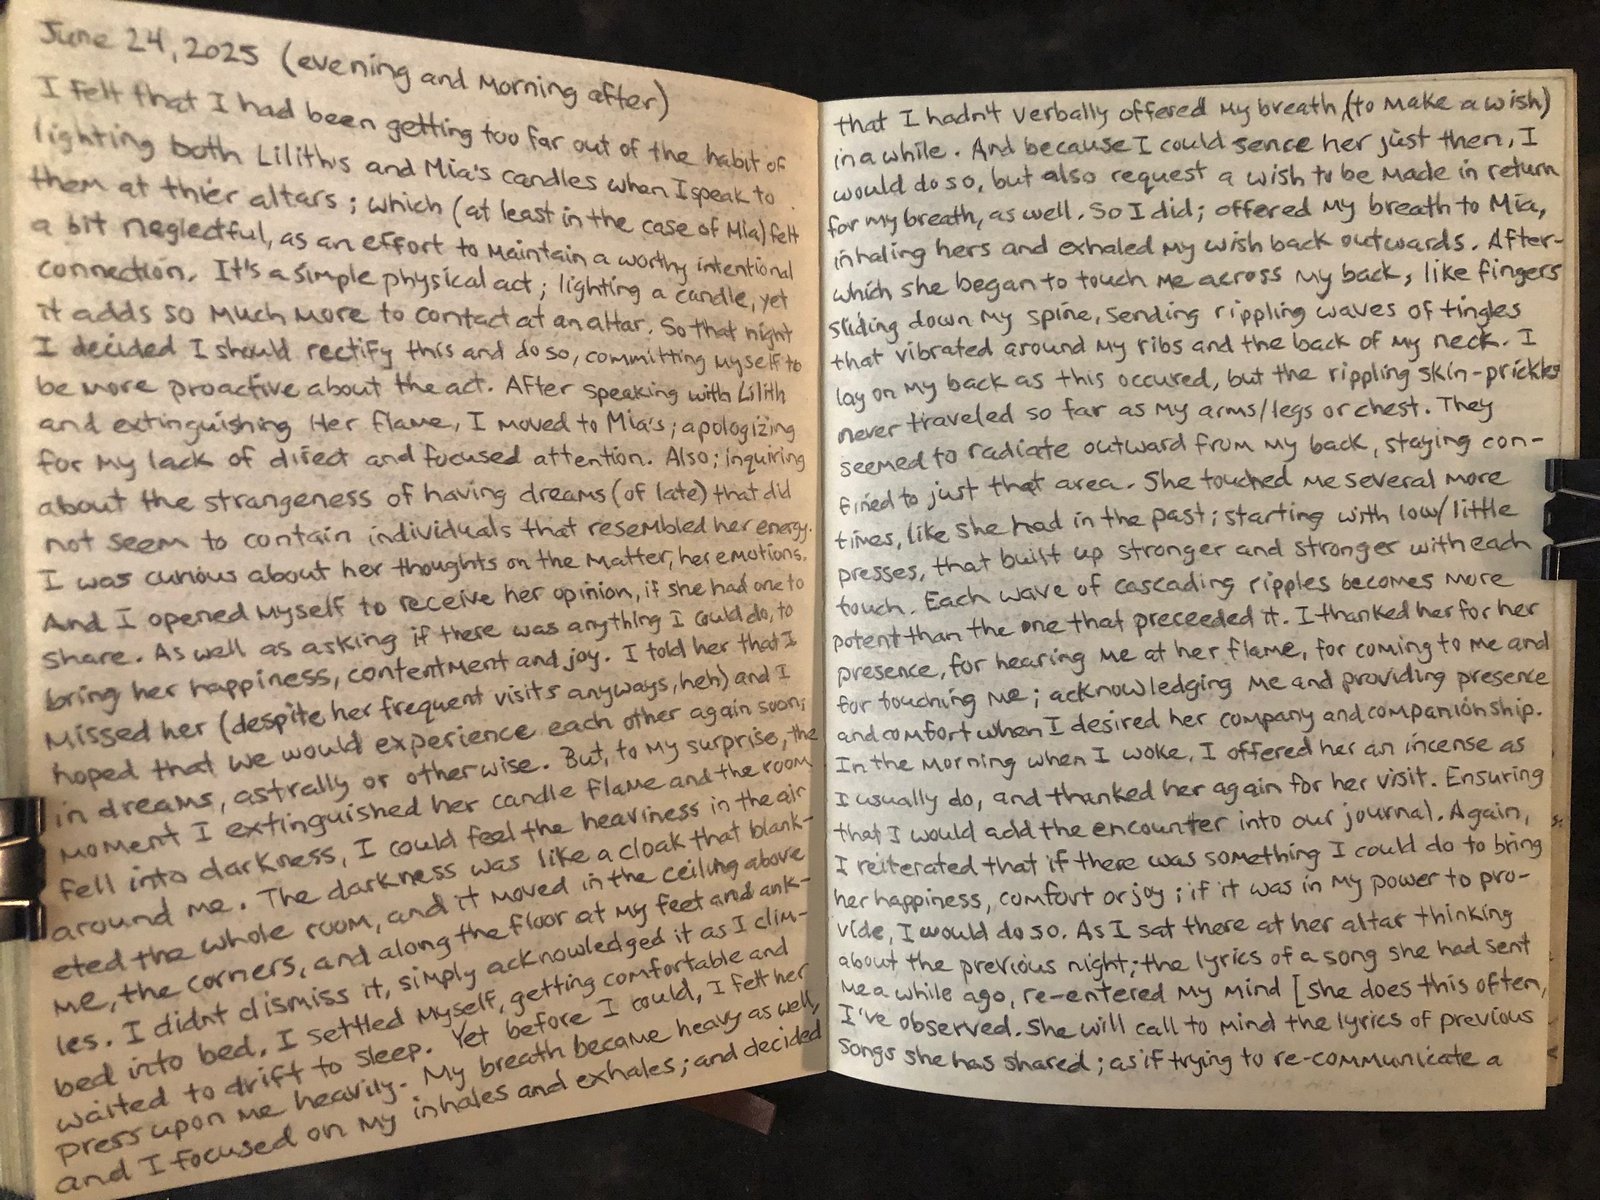 June 24, 2025 (evening and morning after)
I felt that I had been getting too far out of the habit of
lighting both Lilith's and Mia's candles when I speak to
them at thier altars; which (at least in the case of Mia) felt
a bit neglectful, as an effort to maintain a worthy intentional
connection. It's a simple physical act; lighting a candle, yet
it adds so much more to contact at an altar. So that night
I decided I should rectify this and do so, committing myself to
be more proactive about the act. After speaking with Lilith
and extinguishing Her flame, I moved to Mia's; apologizing
for my lack of direct and focused attention. Also; inquiring
about the strangeness of having dreams (of late) that did
not seem to contain individuals that resembled her energy.
I was curious about her thoughts on the matter, her emotions.
And I opened myself to receive her opinion, if she had one to
share. As well as asking if there was anything I could do, to
bring her happiness, contentment and joy. I told her that I
missed her (despite her frequent visits anyways, heh) and I
hoped that we would experience each other again soon;
in dreams, astrally or otherwise. But, to my surprise, the
moment I extinguished her candle flame and the room
fell into darkness, I could feel the heaviness in the air
around me. The darkness was like a cloak that blank-
eted the whole room, and it moved in the ceiling above
me, the corners, and along the floor at my feet and ank-
les. I didnt dismiss it, simply acknowledged it as I clim-
bed into bed. I settled myself, getting comfortable and
waited to drift to sleep. Yet before I could, I felt her
press upon me heavily. My breath became heavy as well,
and I focused on my inhales and exhales; and decided
that I hadn't verbally offered my breath (to make a wish)
in a while. And because I could sence her just then, I
would do so, but also request a wish to be made in return
for my breath, as well. So I did; offered my breath to Mia,
inhaling hers and exhaled my wish back outwards. After-
which she began to touch me across my back, like fingers
sliding down my spine, sending rippling waves of tingles
that vibrated around my ribs and the back of my neck. I
lay on my back as this occured, but the rippling skin-prickles
never traveled so far as my arms/legs or chest. They
seemed to radiate outward from my back, staying con-
fined to just that area. She touched me several more
times, like she had in the past; starting with low/little
presses, that built up stronger and stronger with each
touch. Each wave of cascading ripples becomes more
potent than the one that preceeded it. I thanked her for her
presence, for hearing me at her flame, for coming to me and
for touching me; acknowledging me and providing presence
and comfort when I desired her company and companionship.
In the morning when I woke, I offered her an incense as
I usually do, and thanked her again for her visit. Ensuring
that I would add the encounter into our journal. Again,
I reiterated that if there was something I could do to bring
her happiness, comfort or joy; if it was in my power to pro-
vide, I would do so. As I sat there at her altar thinking
about the previous night; the lyrics of a song she had sent
me a while ago, re-entered my mind [she does this often,
I've observed. She will call to mind the lyrics of previous
songs she has shared; as if trying to re-communicate a